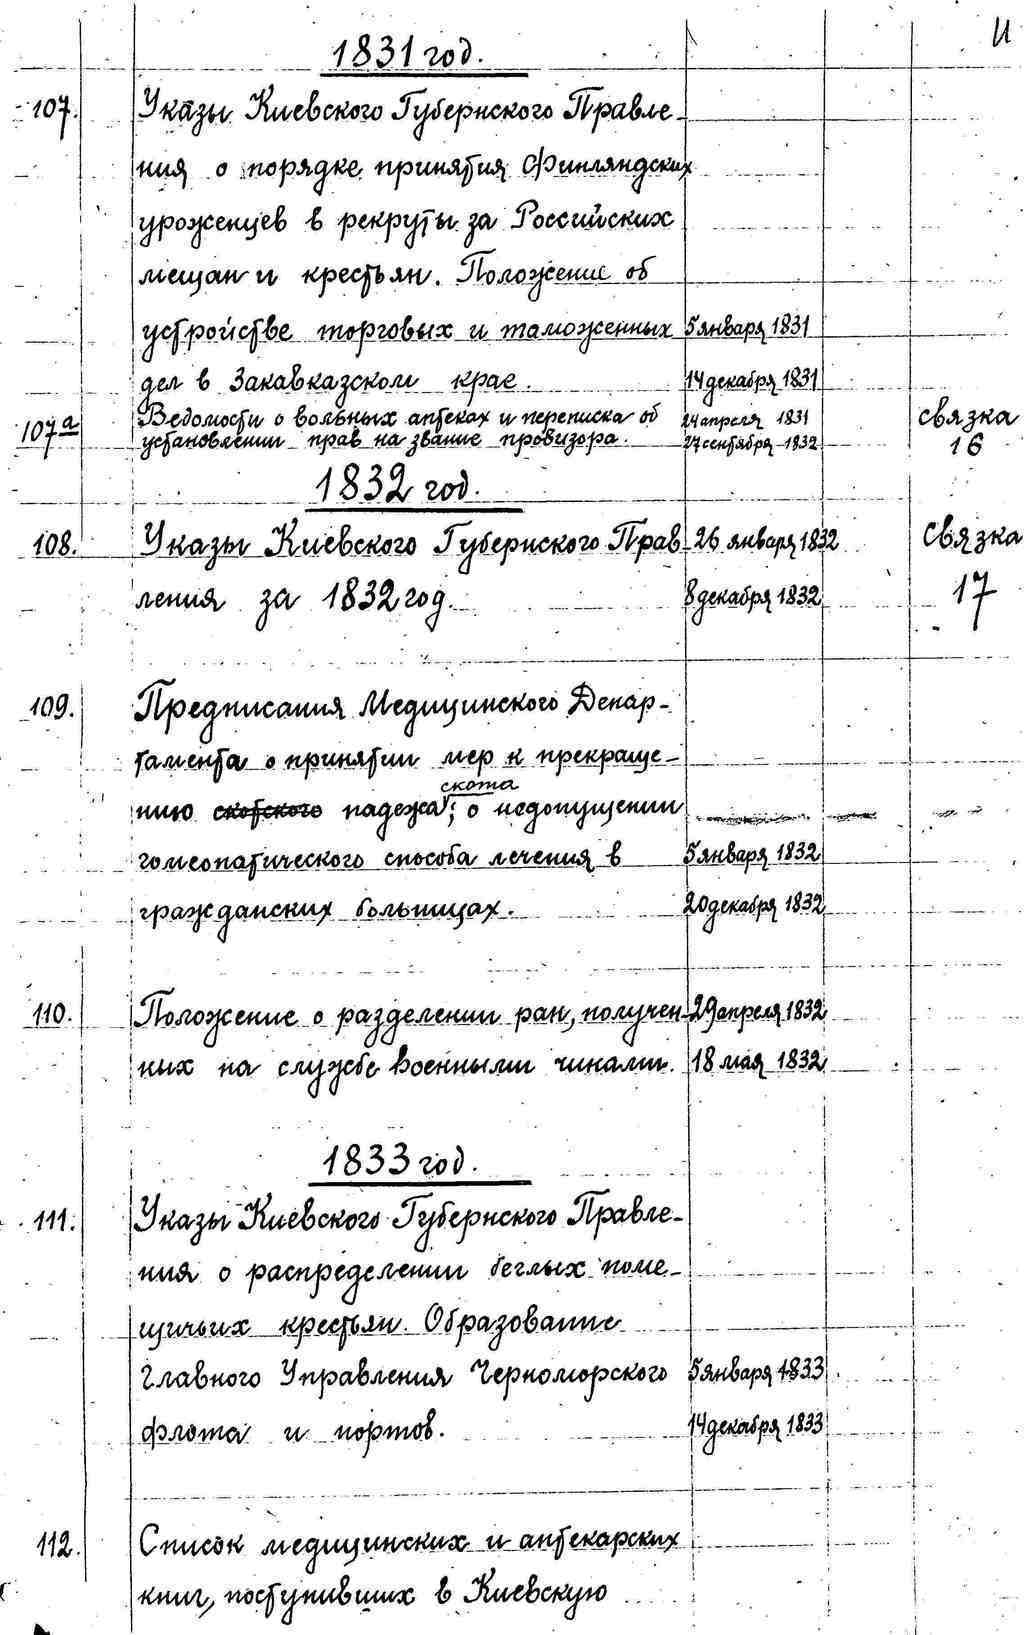 11
1831 год.
107. Указы Киевского Губернского Правле-
ния о порядке принятия Финляндских
уроженцев в рекруты за Российских
мещан и крестьян. Положение об
устройстве торговых и таможенных 5 января 1831
дел в Закавказском крае. 14 декабря 1831
107а Ведомости о вольных аптеках и переписка об 24 апреля 1831 связка
установлении прав на звание провизора. 27 сентября 1832 16
1832 год.
108. Указы Киевского Губернского Прав- 26 января 1832 Связка
ления за 1832 год. 8 декабря 1832 17
109. Предписания Медицинского Депар-
тамента о принятии мер к прекраще-
скота
нию скотского падежа; о недопущении
гомеопатического способа лечения в 5 января 1832
гражданских больницах. 20 декабря 1832
110. Положение о разделении ран, получен- 29 апреля 1832
ных на службе военными чинами. 18 мая 1832
1833 год.
111. Указы Киевского Губернского Правле-
ния о распределении беглых поме-
щичьих крестьян. Образование
Главного Управления Черноморского 5 января 1833
флота и портов. 14 декабря 1833
112. Список медицинских и аптекарских
книг, поступивших в Киевскую